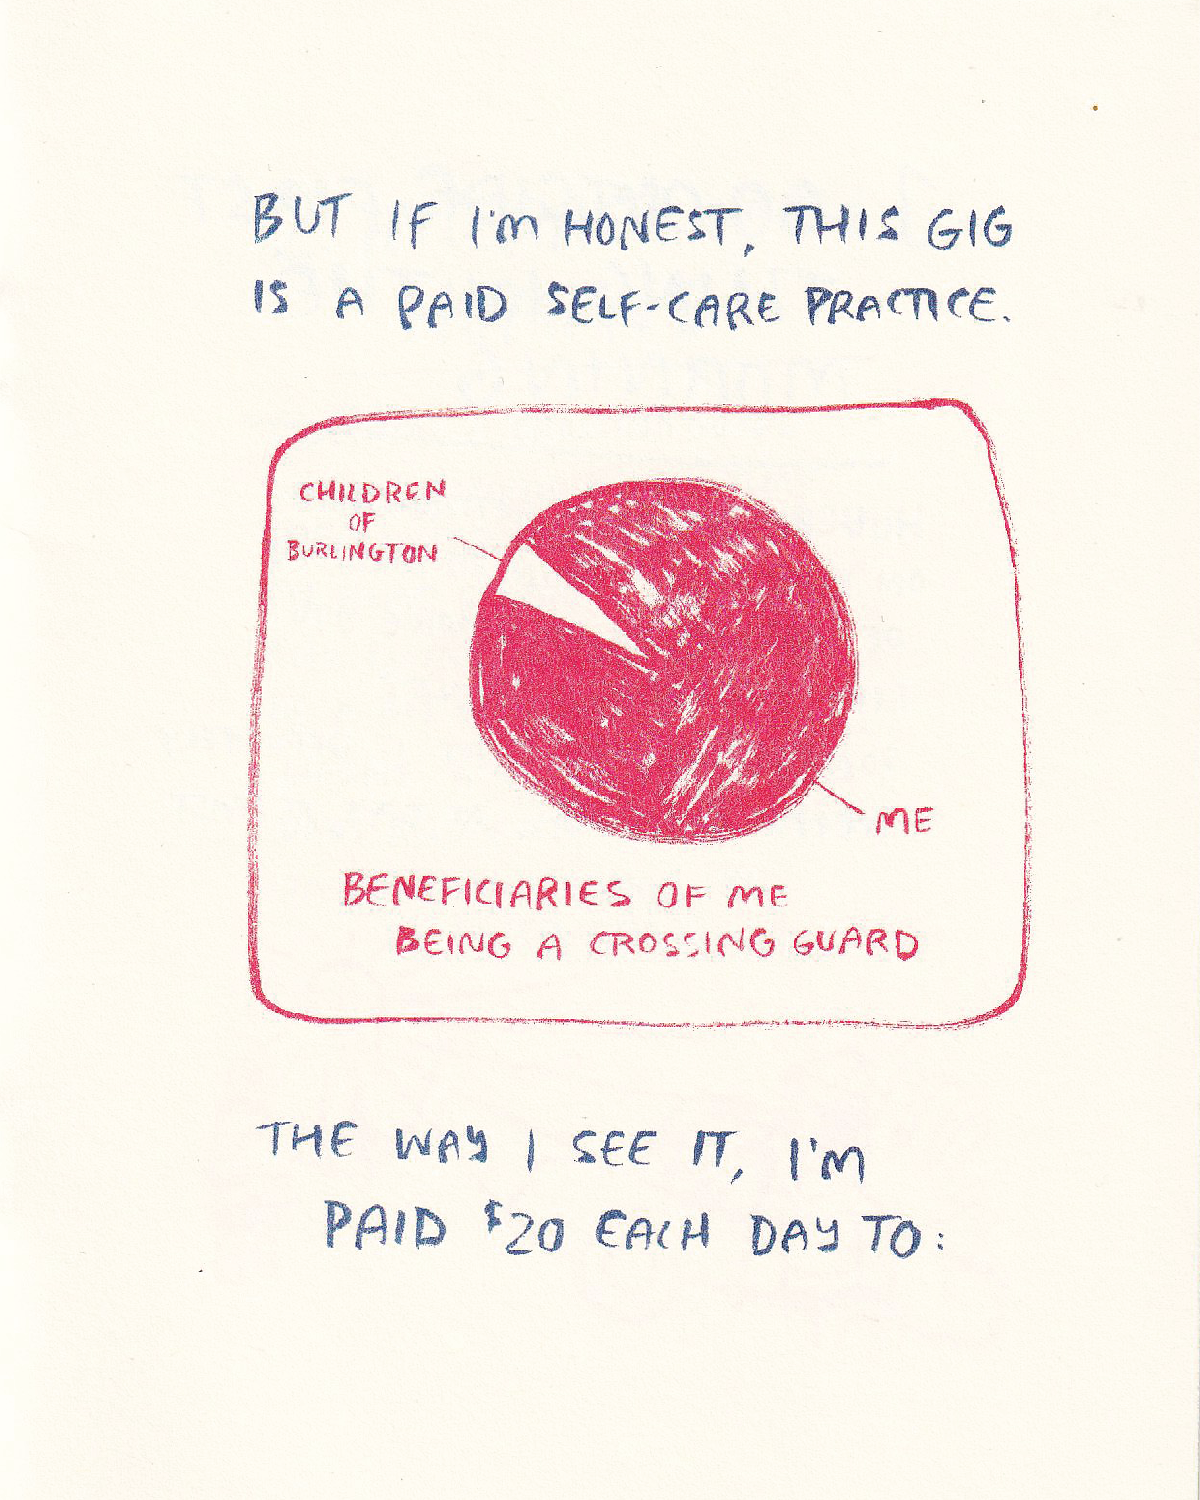 BUT IF I'M HONEST, THIS GIG
IS A PAID SELF-CARE PRACTICE.
CHILDREN
OF
BURLINGTON
ME
BENEFICIARIES OF ME
BEING A CROSSING GUARD
THE WAY I SEE IT, I'M
PAID $20 EACH DAY TO: